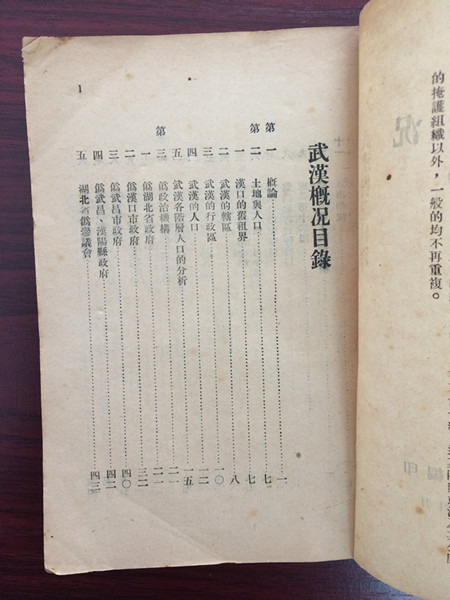 的掩護組織以外，一般的均不再重複。
武漢概况目錄
第一 概論……一
第二 土地與人口……七
一 漢口的舊租界……七
二 武漢的轄區……八
三 武漢的行政區……一〇
四 武漢的人口……一二
五 武漢各階層人口的分析……一五
第三 僞政治機構……二一
一 僞湖北省政府……二一
二 僞漢口市政府……三二
三 僞武昌市政府……四〇
四 僞武昌、漢陽縣政府……四二
五 湖北省僞參議會……四三
1